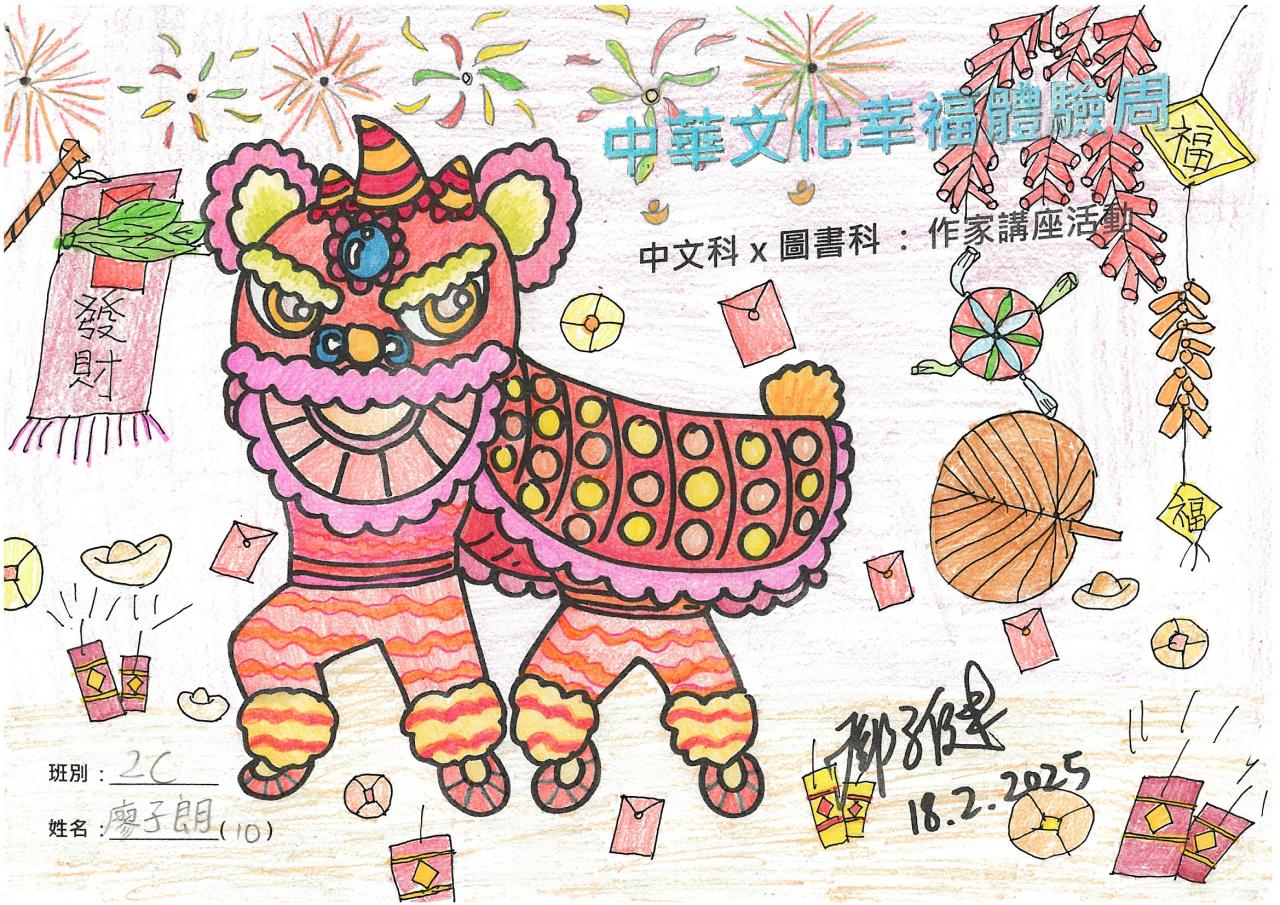 中華文化幸福體驗周
中文科 x 圖書科 : 作家講座活動
福
發
財
福
18.2.2025
班別 : 2C
姓名 : 廖子朗 (10)